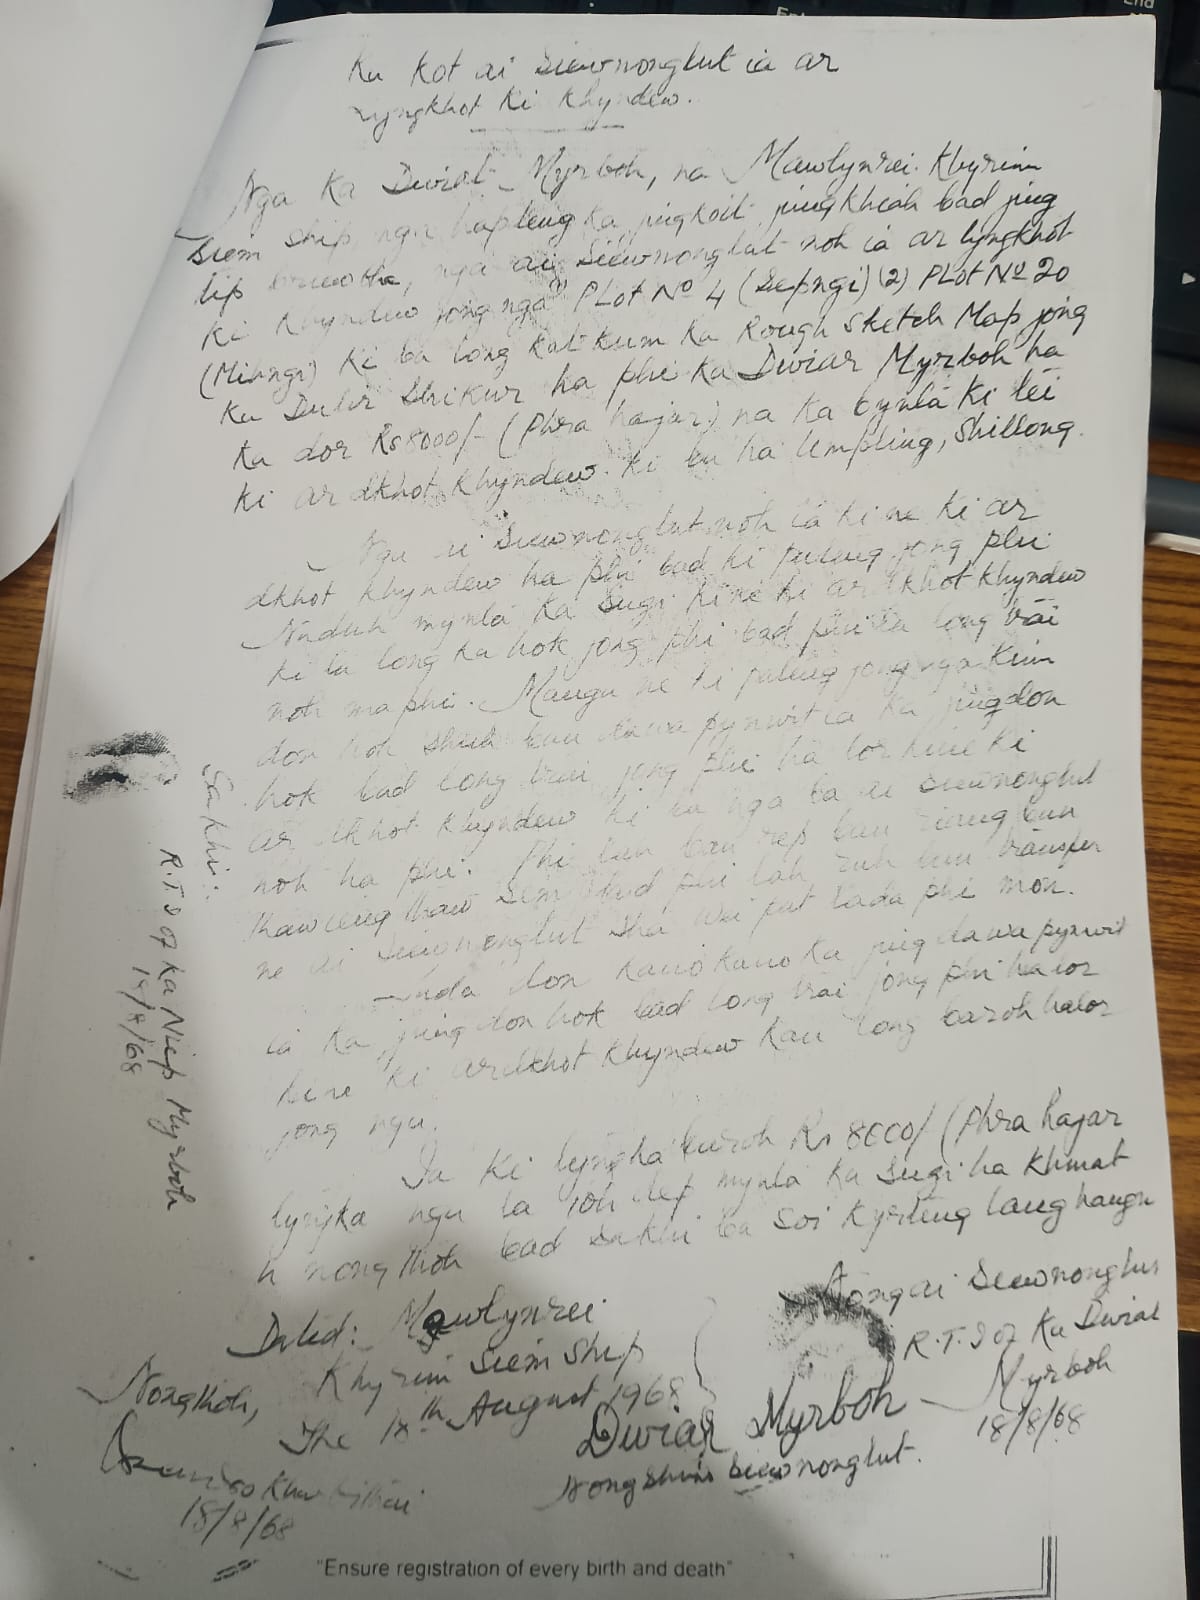 Ka Kot ai Siewnonglut ia ar
Lyngkhot Ki Khyndew.
Nga Ka Dwiat Myrboh, na Mawlynrei. Khyrim
Siem ship, nga hapleng ka jingkoit jingkhiah bad jing
tip briew, nga ai Siewnonglut noh ia ar lyngkhot
Ki Khyndew jong nga PLOT No 4 (Sepngi) (2) PLOT No 20
(Mihngi) Ki ba long kat kum ka Rough Sketch Map jong
Ka Dulir Shikur ha phi Ka Dwiar Myrboh ha
ka dor Rs 8000/- (Phra hajar) na ka bynta ki lei
ki ar dkhot Khyndew. Ki ba ha Umpling, Shillong.
Nga ai Siewnonglut noh ia kine ki ar
dkhot Khyndew ha phi bad ki pateng jong phi
Naduh mynta ka Sngi. Kine ki ar dkhot Khyndew
ki la long ka hok jong phi bad phi la long trai
noh ma phi. Manga ne ki pateng jong nga kim
don hok shuh ban dawa pynwit ia ka jingdon
hok bad long trai jong phi ha lor kine ki
ar dkhot Khyndew ki ba nga la ai Siewnonglut
noh ha phi. Phi lah ban rep ban rang ban
thaw ieng thaw sem bad phi lah ruh ban transfer
ne ai Siewnonglut sha wei pat lada phi mon.
Lada don kano kano ka jingdawa pynwit
ia ka jingdon hok bad long trai jong phi ha lor
kine ki ar dkhot Khyndew kan long baroh halor
jong nga.
Ia ki tyngka baroh Rs 8000/- (Phra hajar
tyngka nga la ioh dep mynta ka sngi ha khmat
u nongthoh bad sakhi ba soi kyrteng lang hangne
Sakhi:
R.T.I of Ka Nlip Myrboh
18/8/68
Dated: Mawlynrei
Khyrim Siem Ship
The 18th August 1968
Nongthoh,
18/8/68
Nongai Siewnonglut
R.T.I of Ka Dwiat
Myrboh
18/8/68
Dwiar Myrboh
Nongshim Siewnonglut.
"Ensure registration of every birth and death"